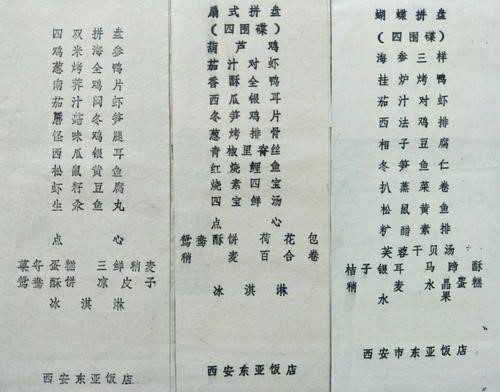 四双拼盘
鸡米海参
葱烤全鸭
南荠鸡片
茄汁闷虾
蘑菇冬笋
怪味鸡腿
西瓜银耳
松鼠黄鱼
虾籽豆腐
生汆鱼丸
点心
蛋糕 三鲜稍麦
鸳鸯酥饼 凉皮子
冰淇淋
西安东亚饭店
扇式拼盘
(四围碟)
葫芦鸡
茄汁对虾
香酥全鸭
西瓜银耳
冬笋鸡片
葱烤排骨
青椒里脊丝
红烧鲤鱼
烧素四宝
四鲜汤
点心
鸳鸯酥饼 荷花包
稍麦 百合卷
冰淇淋
西安东亚饭店
蝴蝶拼盘
(四围碟)
海参三样
挂炉烤鸭
茄汁对虾
西法鸡排
相子豆腐
冬笋鱼仁
扒蒸菜卷
松鼠黄鱼
醋素排
芙蓉干贝汤
桔子银耳 马蹄酥
稍麦 水晶蛋糕
水果
西安市东亚饭店